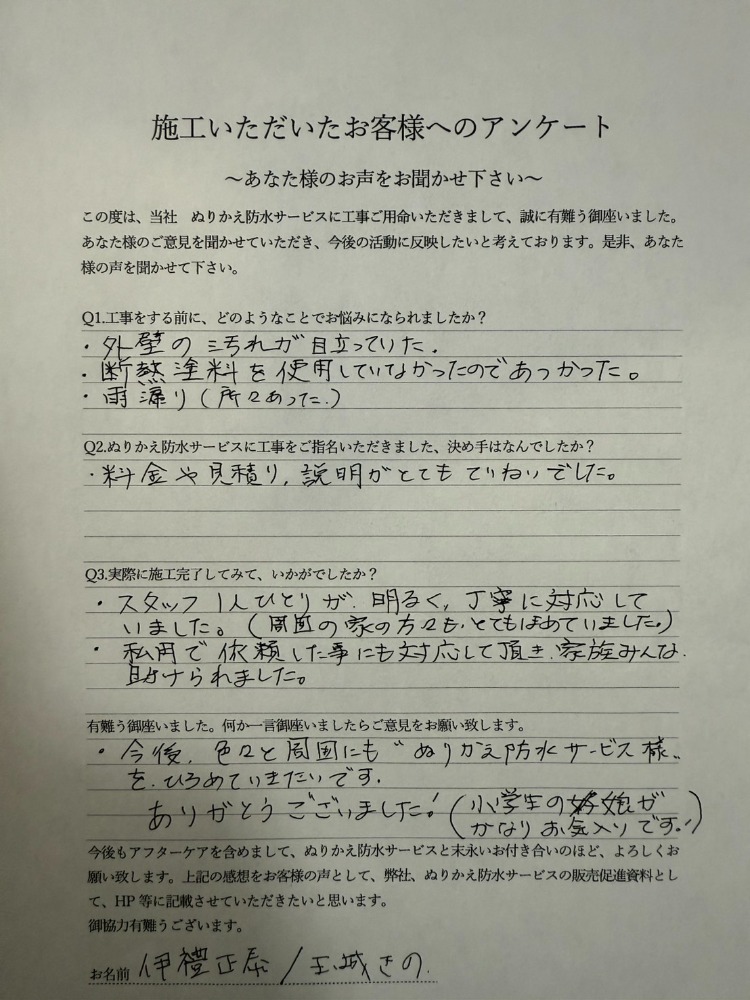 施工いただいたお客様へのアンケート
～あなた様のお声をお聞かせ下さい～
この度は、当社　ぬりかえ防水サービスに工事ご用命いただきまして、誠に有難う御座いました。
あなた様のご意見を聞かせていただき、今後の活動に反映したいと考えております。是非、あなた
様の声を聞かせて下さい。
Q1.工事をする前に、どのようなことでお悩みになられましたか？
・外壁の汚れが目立っていた.
・断熱塗料を使用していなかったのであつかった。
・雨漏り(所々あった.)
Q2.ぬりかえ防水サービスに工事をご指名いただきました、決め手はなんでしたか？
・料金や見積り, 説明がとてもていねいでした。
Q3.実際に施工完了してみて、いかがでしたか？
・スタッフ1人ひとりが、明るく, 丁寧に対応して
いました。(周囲の家の方々も、とてもほめていました。)
・私用で依頼した事にも対応して頂き、家族みんな、
助けられました。
有難う御座いました。何か一言御座いましたらご意見をお願い致します。
・今後, 色々と周囲にも"ぬりかえ防水サービス様"
を、ひろめていきたいです.
ありがとうございました！(小学生の娘が
かなりお気入りです！)
今後もアフターケアを含めまして、ぬりかえ防水サービスと末永いお付き合いのほど、よろしくお
願い致します。上記の感想をお客様の声として、弊社、ぬりかえ防水サービスの販売促進資料とし
て、HP 等に記載させていただきたいと思います。
御協力有難うございます。
お名前 伊禮正泰 / 玉城きの.